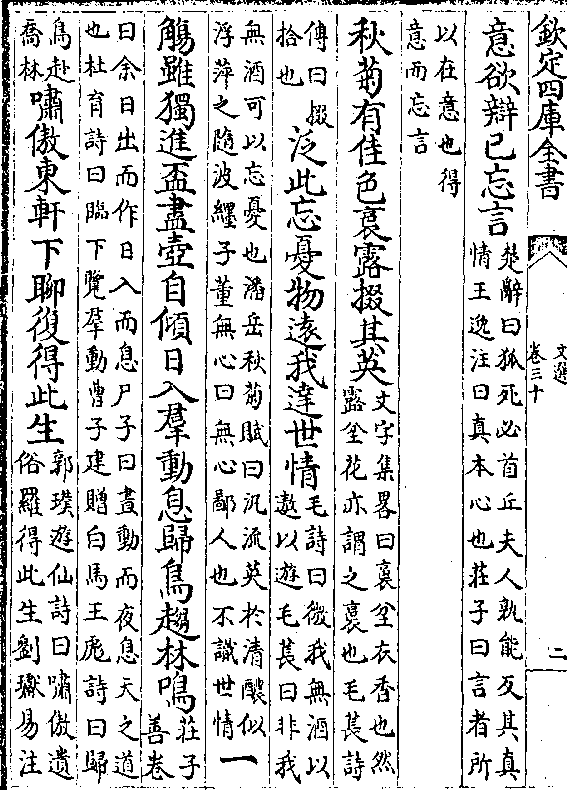 欽定四庫全書
文選
卷三十
二
意欲辯已忘言
楚辭曰狐死必首丘夫人孰能反其真
情王逸注曰真本心也莊子曰言者所
以在意也得
意而忘言
秋菊有佳色裛露掇其英
文字集畧曰裛坌衣香也然
露坌花亦謂之裛也毛萇詩
傳曰掇
拾也
泛此忘憂物遠我達世情
毛詩曰微我無酒以
遨以遊毛萇曰非我
無酒可以忘憂也潘岳秋菊賦曰汎流英於清醴似
浮萍之隨波纒子董無心曰無心鄙人也不識世情
一
觴雖獨進盃盡壺自傾日入羣動息歸鳥趨林鳴
莊子
善卷
曰余日出而作日入而息尸子曰晝動而夜息天之道
也杜育詩曰臨下覽羣動曹子建贈白馬王彪詩曰歸
鳥赴
喬林
嘯傲東軒下聊復得此生
郭璞遊仙詩曰嘯傲遺
俗羅得此生劉瓛易注